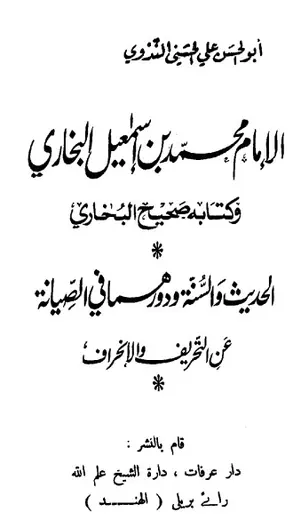 أبو الحسن علي الحسني الندوي
الإمام محمد بن إسمعيل البخاري
وكتابه صحيح البخاري
*
الحديث والسنة ودورهما في الصيانة
عن التحريف والإنحراف
*
قام بالنشر :
دار عرفات ، دارة الشيخ علم الله
رائے بريلی ( الهند )